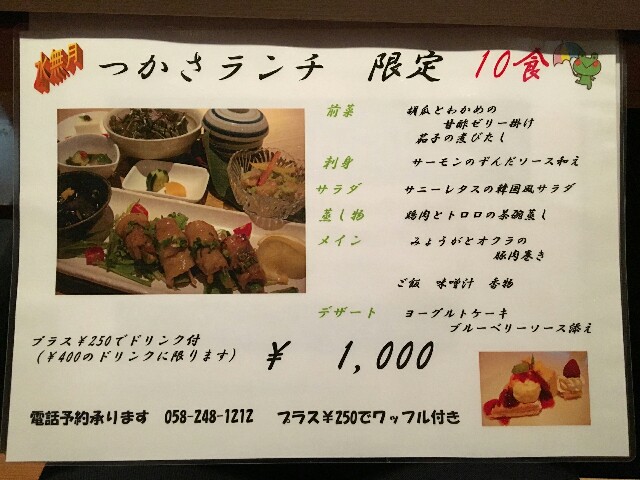 水無月 つかさランチ 限定 10食
前菜 胡瓜とわかめの
甘酢ゼリー掛け
茄子の煮びたし
刺身 サーモンのずんだソース和え
サラダ サニーレタスの韓国風サラダ
蒸し物 鶏肉とトロロの茶碗蒸し
メイン みょうがとオクラの
豚肉巻き
ご飯 味噌汁 香物
デザート ヨーグルトケーキ
ブルーベリーソース添え
プラス¥250でドリンク付
(¥400のドリンクに限ります)
¥ 1,000
電話予約承ります 058-248-1212 プラス¥250でワッフル付き